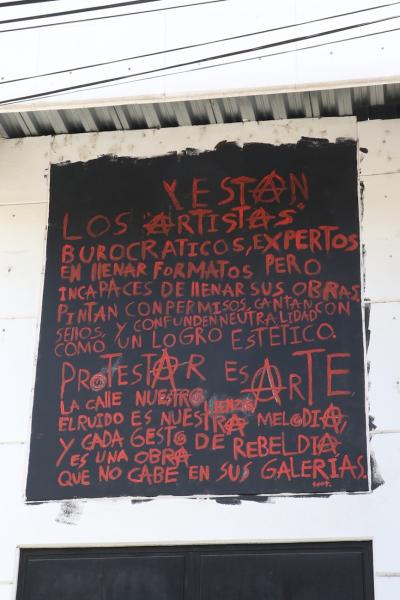 Y ESTAN
LOS "ARTISTAS"
BUROCRATICOS, EXPERTOS
EN llENAR FORMATOS PERO
INCAPACES DE llENAR SUS OBRAS.
PINTAN CON PERMISOS, CANTAN CON
SEllOS, Y CONFUNDEN NEUTRALIDAD
COMO UN LOGRO ESTETICO.
PROTESTAR ES ARTE
LA CAllE NUESTRO lIENZO
EL RUIDO ES NUESTRA MELODIA,
Y CADA GESTO DE REBELDIA
Y ES UNA OBRA
QUE NO CABE EN SUS GALERIAS.